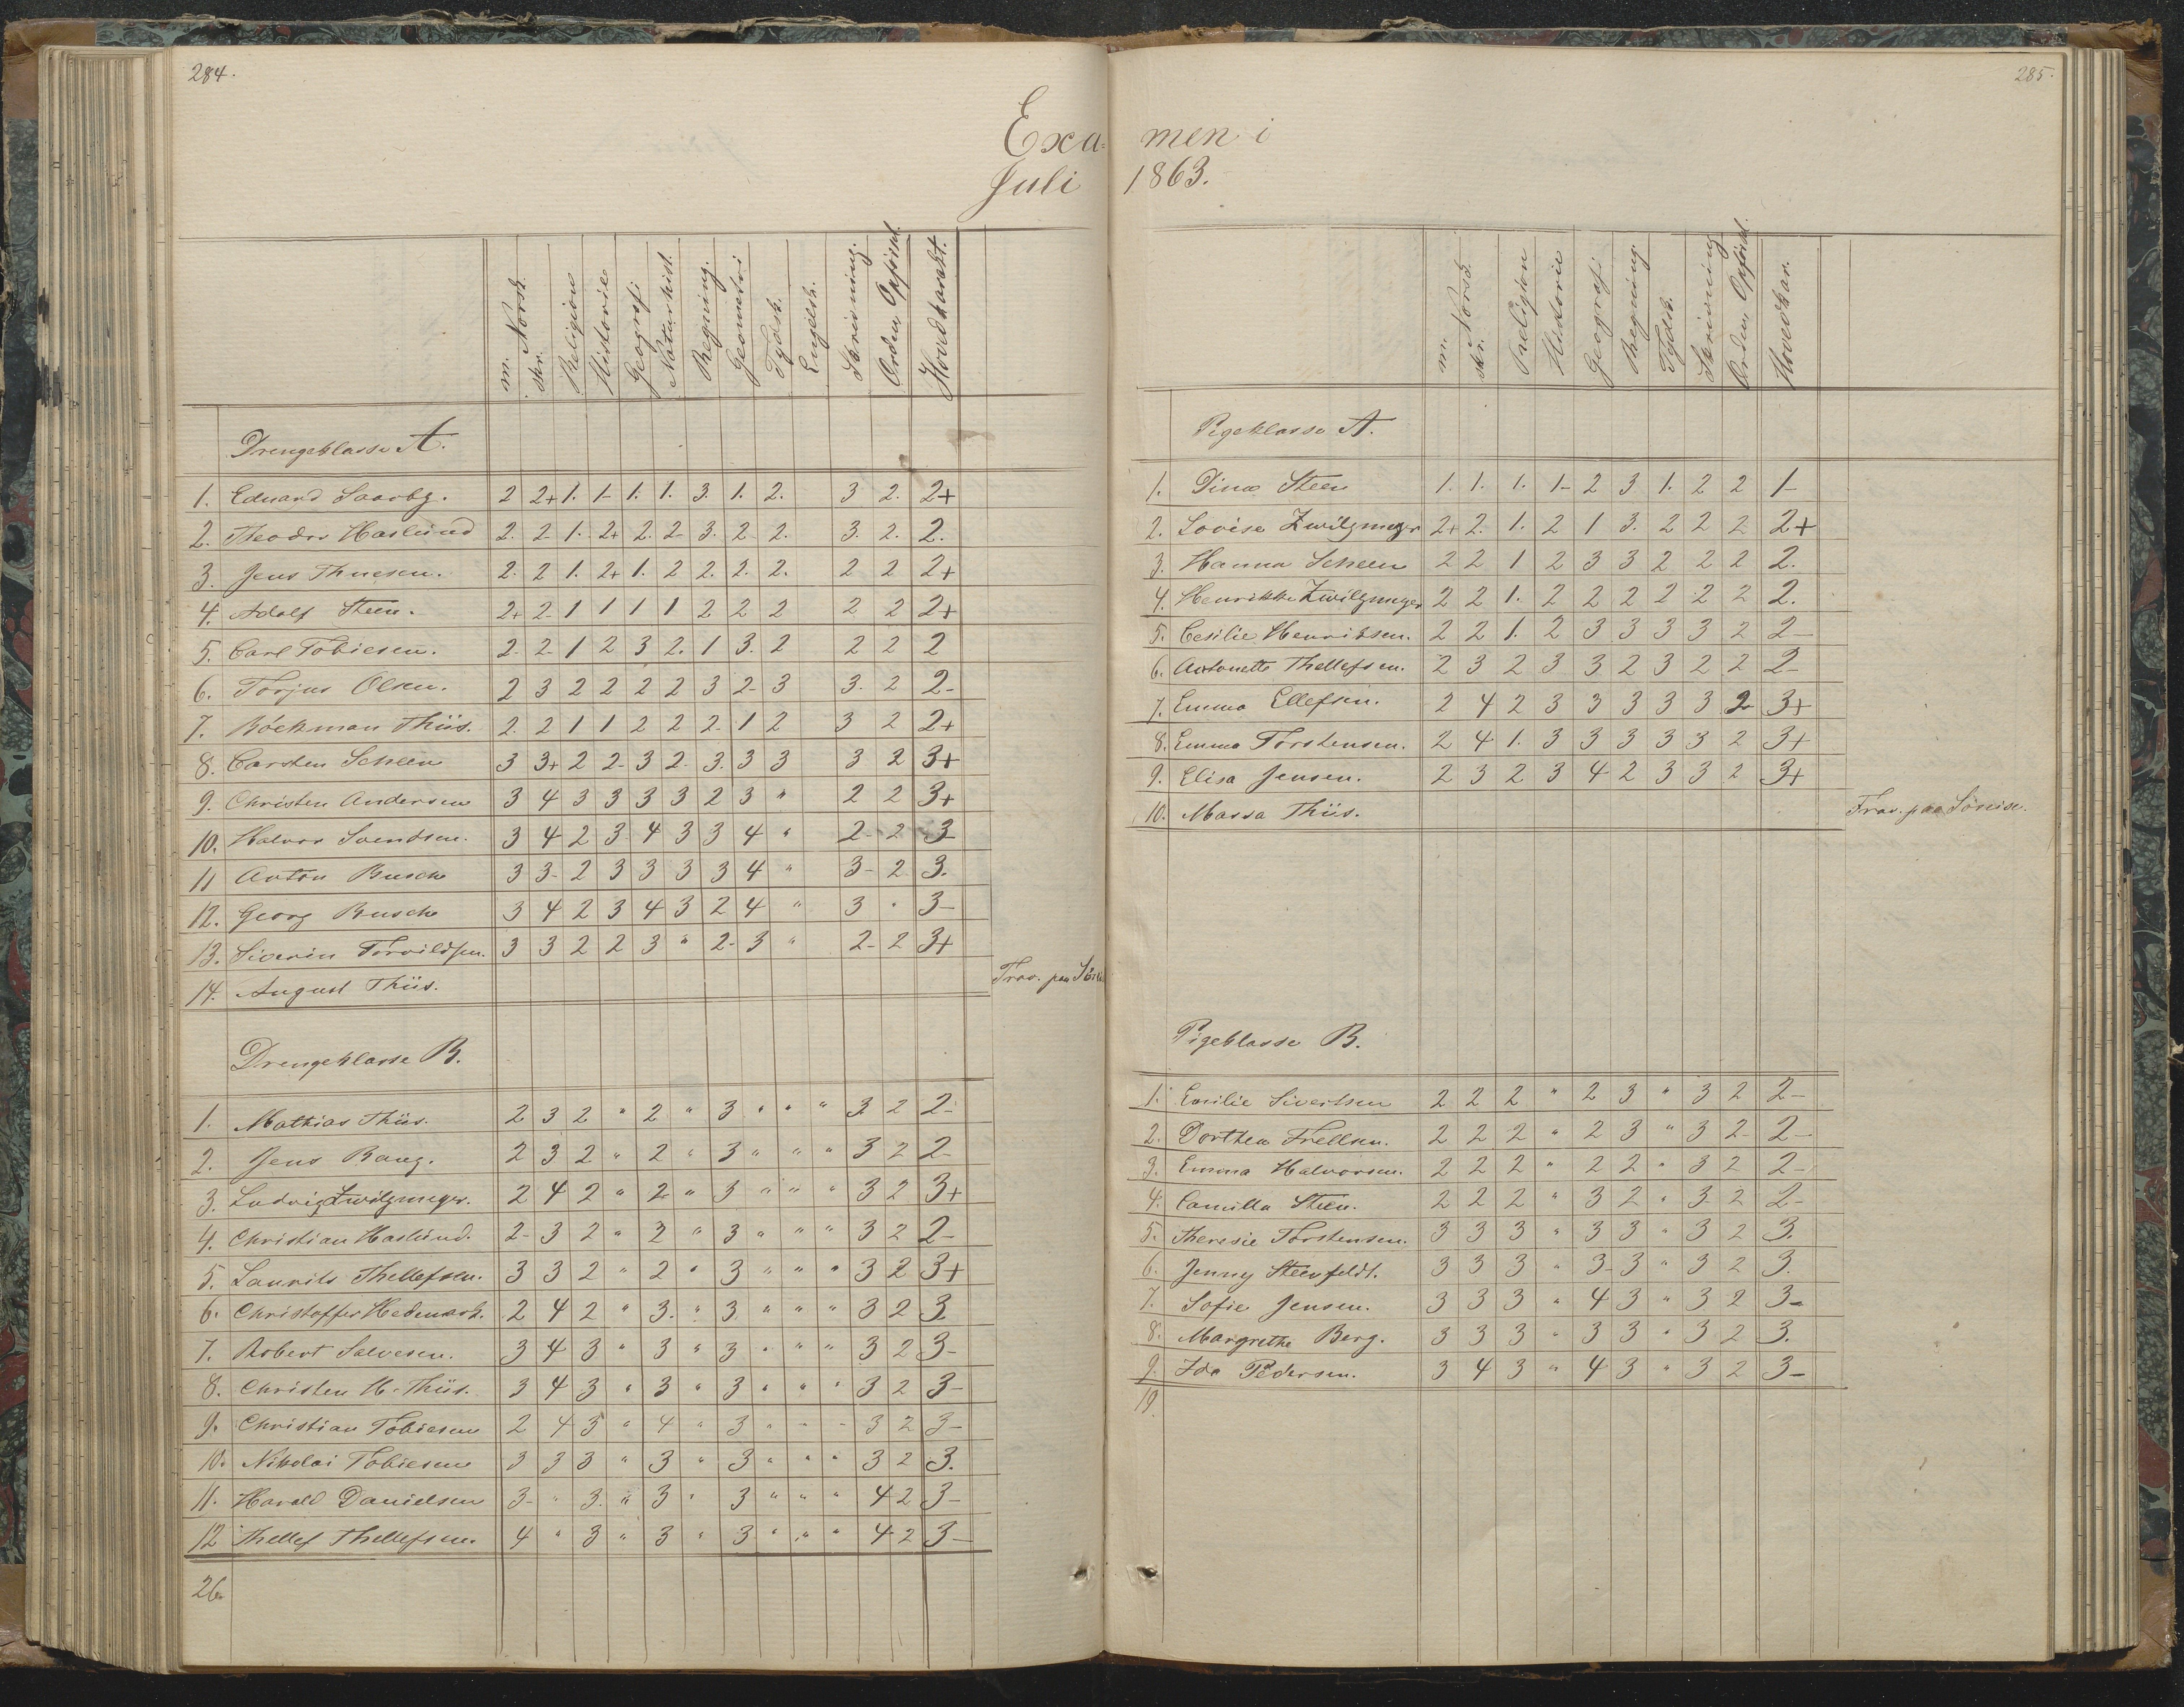 284.
Exa=
Juli
m. Norsk skr. Religion Historie Geografi Naturhist. Regning. Geometri Tydsk. Engelsk. Skrivning. Orden, Opførsel. Hovedkarakt.
Drengeklasse A.
1. Eduard Saarbg. 2 2+ 1. 1- 1. 1. 3. 1. 2. 3 2. 2+
2. Theodor Haslund 2. 2- 1. 2+ 2. 2- 3. 2- 2. 3. 2. 2.
3. Jens Thuesen. 2. 2 1. 2+ 1. 2 2. 2. 2. 2 2 2+
4. Adolf Steen. 2+ 2- 1 1 1 1 2 2 2 2 2 2+
5. Carl Tobiesen. 2- 2- 1 2 3 2. 1 3. 2 2 2 2
6. Torjus Olsen. 2 3 2 2 2 2 3 2- 3 3. 2 2-
7. Böckman Thiis. 2. 2 1 1 2 2 2- 1 2 3 2 2+
8. Carsten Scheen 3 3+ 2 2- 3 2- 3. 3 3 3 2 3+
9. Christen Andersen 3 4 3 3 3 3 2 3 " 2 2 3+
10. Halvor Svendsen. 3 4 2 3 4 3 3 4 " 2- 2 3
11 Anton Busch 3 3- 2 3 3 3 3 4 " 3- 2 3.
12. Georg Busch 3 4 2 3 4 3 2 4 " 3 " 3-
13. Siverin Torvildsen. 3 3 2 2 3 " 2- 3 " 2- 2 3+
14. August Thiis. Frav. paa
Drengeklasse B.
1. Mathias Thiis. 2 3 2 " 2 " 3 " " " 3 2 2-
2. Jens Bang. 2 3 2 " 2 " 3 " " " 3 2 2-
3. Ludvig Zwilgmeyer. 2 4 2 " 2 " 3 " " " 3 2 3+
4. Christian Haslund. 2- 3 2 " 2 " 3 " " " 3 2 2-
5. Laurits Thellefsen. 3 3 2 " 2 " 3 " " " 3 2 3+
6. Christoffer Hedemark. 2 4 2 " 3. " 3 " " " 3 2 3
7. Robert Salvesen. 3 4 3 " 3 " 3 " " " 3 2 3-
8. Christen H. Thiis. 3 4 3 " 3 " 3 " " " 3 2 3-
9. Christian Tobiesen 2 4 3 " 4 " 3 " " " 3 2 3-
10. Nikolai Tobiesen 3 3 3 " 3 " 3 " " " 3 2 3.
11. Harald Danielsen 3- " 3. " 3 " 3 " " " 4 2 3-
12 Thellef Thellefsen. 4 " 3 " 3 " 3 " " " 4 2 3-
26.
285.
men i
1863.
m. Norsk. skr. Religion Historie Geografi Regning. Tydsk. Skrivning Orden, Opførsel. Hovedkar.
Pigeklasse A.
1. Dina Steen 1. 1. 1. 1- 2 3 1. 2 2 1-
2. Lovise Zwilgmeyer 2+ 2. 1. 2 1 3. 2 2 2 2+
3. Hanna Scheen 2 2 1 2 3 3 2 2 2 2.
4. Henrikke Zwilgmeyer 2 2 1. 2 2 2 2 2 2 2.
5. Cesilie Henriksen. 2 2 1. 2 3 3 3 3 2 2-
6. Antonette Thellefsen. 2 3 2 3 3 2 3 2 2 2-
7. Emma Ellefsen. 2 4 2 3 3 3 3 3 2 3+
8. Emma Torstensen. 2 4 1. 3 3 3 3 3 2 3+
9. Elisa Jensen. 2 3 2 3 4 2 3 3 2 3+
10. Massa Thiis. Frav. paa
Pigeklasse B.
1. Emilie Sivertsen 2 2 2 " 2 3 " 3 2 2-
2. Dorthea Frellsen. 2 2 2 " 2 3 " 3 2- 2-
3. Emma Halvorsen. 2 2 2 " 2 2 " 3 2 2-
4. Camilla Steen. 2 2 2 " 3 2 " 3 2 2-
5. Theresie Torstensen. 3 3 3 " 3 3 " 3 2 3.
6. Jenny Steenfeldt. 3 3 3 " 3- 3 " 3 2 3.
7. Sofie Jensen. 3 3 3 " 4 3 " 3 2 3-
8. Margrethe Berg. 3 3 3 " 3 3 " 3 2 3.
9. Ida Pedersen. 3 4 3 " 4 3 " 3 2 3-
19.